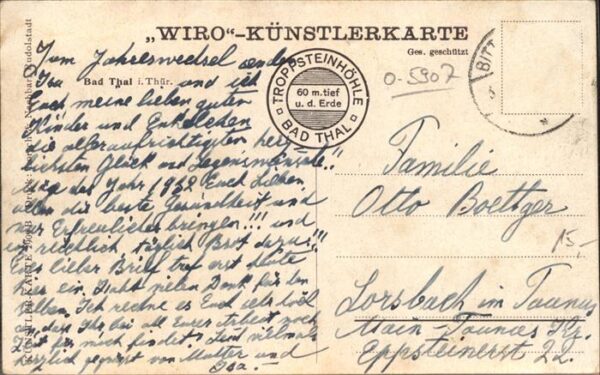 „WIRO“-KÜNSTLERKARTE
Ges. geschützt
Bad Thal i. Thür.
TROPFSTEINHÖHLE
60 m. tief
u. d. Erde
BAD THAL
0-5907
BITT
Zum Jahreswechsel senden
Isa und ich
Euch meine lieben guten
Kinder und Enkelchen
die alleraufrichtigsten herz-
lichsten Glück und Segenswünsche!!
Mög das Jahr 1938 Euch Lieben
allen die beste Gesundheit und
nur Erfreuliches bringen!!! und
reichlich täglich Brot dazu!!!
Euer lieber Brief traf erst heute
hier ein. Habt vielen Dank für den
selben. Ich rechne es Euch sehr hoch
an, dass Ihr bei all Eurer Arbeit noch
Zeit für mich findet. Seid vielmals
herzlich gegrüsst von Mutter und
Isa.
Familie
Otto Boettger
15,-
Lorsbach im Taunus
Main-Taunus Kr.
Eppsteinerst 22.